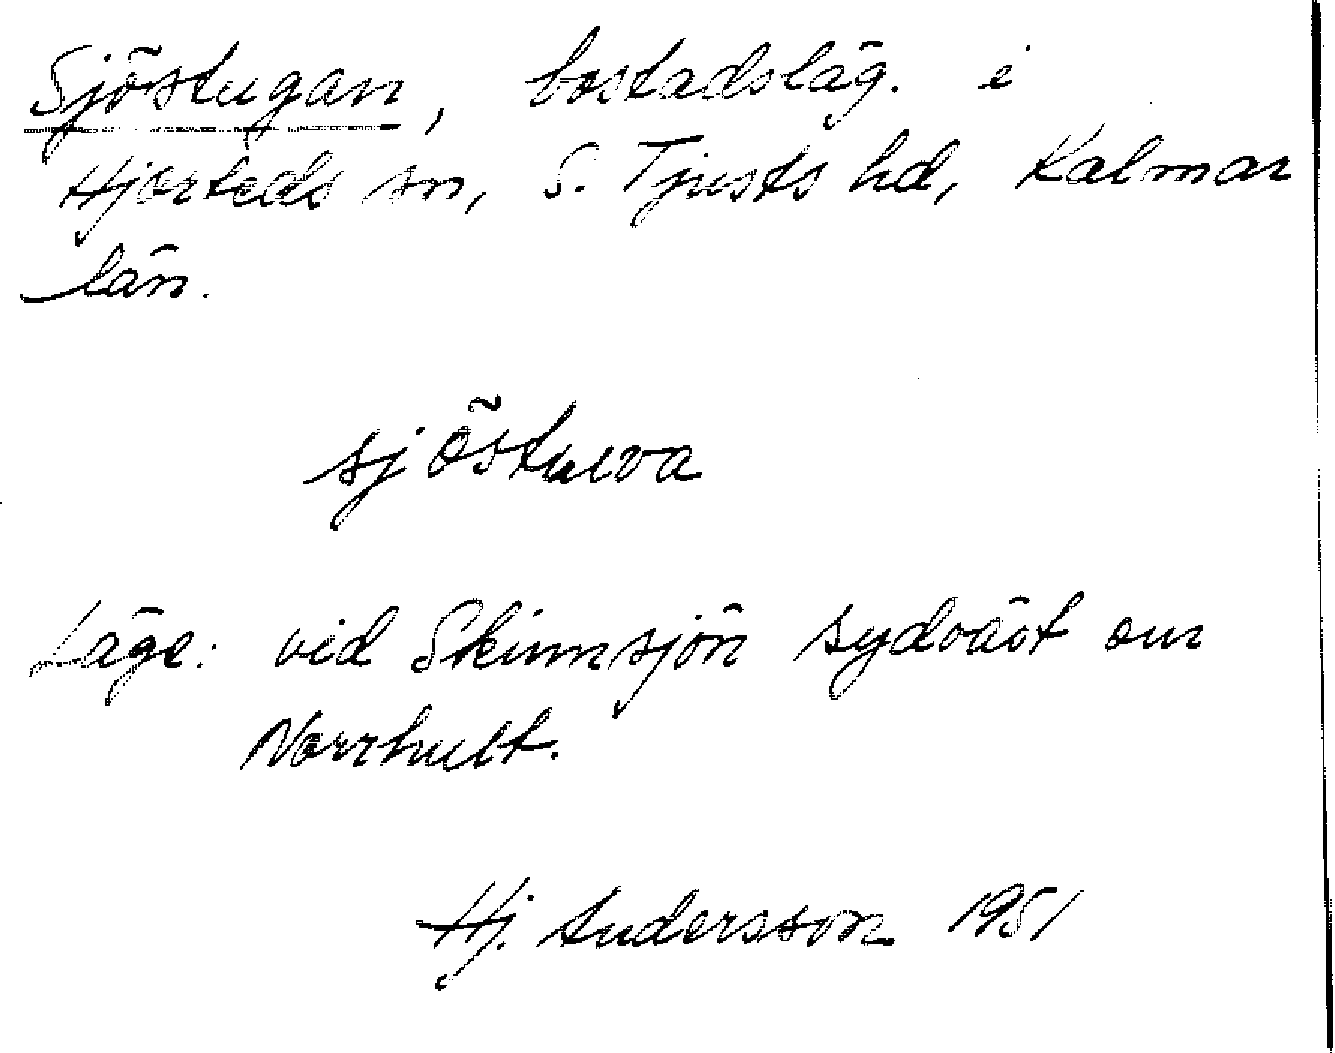 Sjöstugan, bostadsläg. i
Hjorteds sn, S. Tjusts hd, Kalmar
län.
sjöstuwa
Läge: vid Skimsjön sydväst om
Norrhult.
Hj. Andersson 1951